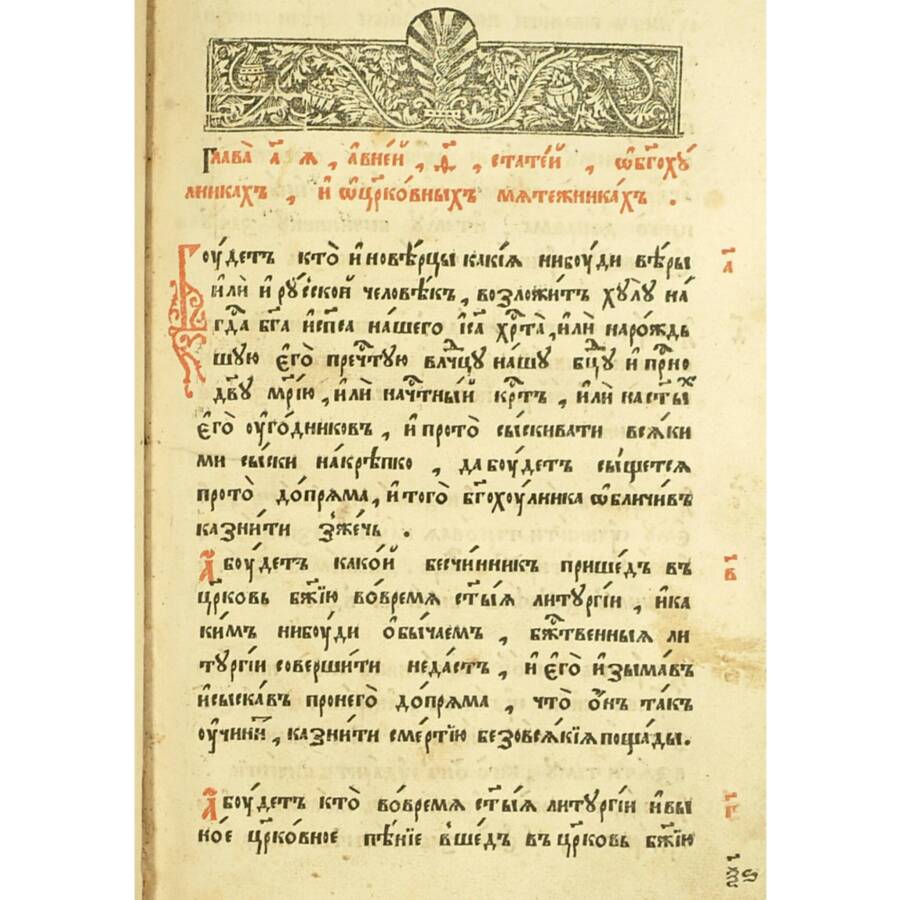 Глава̀ а҃ я , А҆вне́й , ѳ҃ , стате́й , ѡ҆бг҃охꙋ́
лникахъ , и҆ ѡ҆цр҃ко́вныхъ мѧте́жника́хъ .
Боу́детъ кто̀ и҆нове́рцы какі́ѧ нибоу́ди вѣ́ры
и҆лѝ и҆ рꙋ́сской человѣ́къ , возложи́тъ хꙋлꙋ̀ на́
гдⷭ҇а бг҃а и҆ сп҃са на́шего і҆с҃а хрⷭ҇та̀ , и҆лѝ наро́ждь
шꙋю є҆го̀ пречⷭ҇тꙋю влⷣчцꙋ на́шꙋ бц҃ꙋ и҆ прⷭ҇но
дв҃ꙋ мр҃і́ю , и҆лѝ начⷭ҇тны́й крⷭ҇тъ , и҆лѝ на ст҃ы́хъ
є҆го̀ оу҆го́дниковъ , и҆ прото̀ сы́скивати всѧ́ки
ми сы́ски накрѣ́пко , да боу́детъ сы́щетсѧ
прото̀ до́прѧма , и҆ того̀ бг҃охоу́лника ѡ҆бличи́въ
казни́ти зжⷷе́чь .
А҆ боу́детъ како́й безчи́нникъ прише́дъ въ
цр҃ковь бж҃їю во́времѧ ст҃ы́ѧ литꙋргі́и , и҆ ка
ки́мъ нибоу́ди ѻ҆бы́чаемъ , бжⷭ҇твенныѧ ли
тꙋргі́и соверши́ти неда́стъ , и҆ є҆го̀ и҆зыма́въ
и҆ сыска́въ пронего̀ до́прѧма , что̀ ѻ҆́нъ та́къ
оу҆чини́тъ , казни́ти сме́ртїю безовсѧ́кїѧ поща́ды.
А҆ боу́детъ кто̀ во́времѧ ст҃ы́ѧ литꙋргі́и и҆ вы
но́е цр҃ко́вное пѣ́нїе вше́дъ въ цр҃ковь бж҃їю
а҃
в҃
г҃